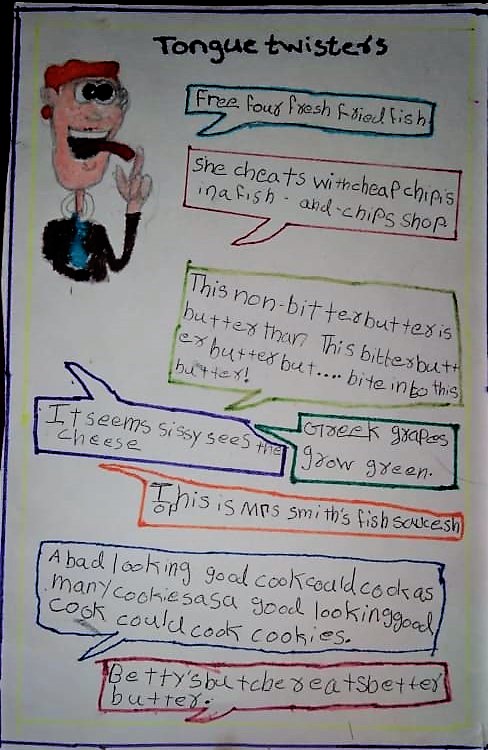 Tongue twisters
Free four fresh fried fish
she cheats with cheap chipis
in a fish - and - chips shop
This non-bitter butter is
butter than This bitter butt
er butter but.... bite in to this
butter!
It seems sissy sees the
cheese
Greek grapes
grow green.
This is Mrs smith's fish saucesh
op
A bad looking good cook could cook as
many cookies asa good looking good
cook could cook cookies.
Betty's butcher eats better
butter.